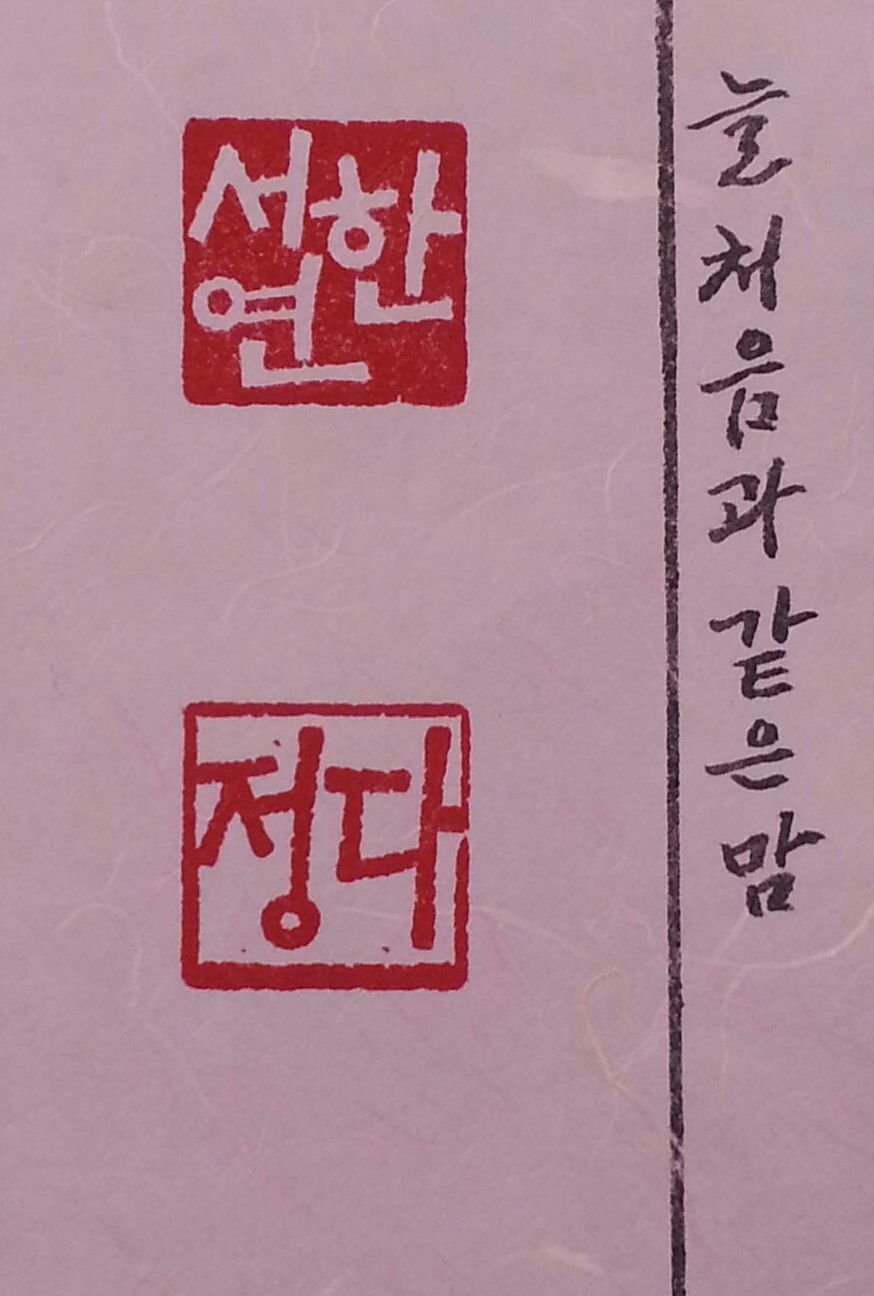 늘 처음과 같은 맘
한서연
다정